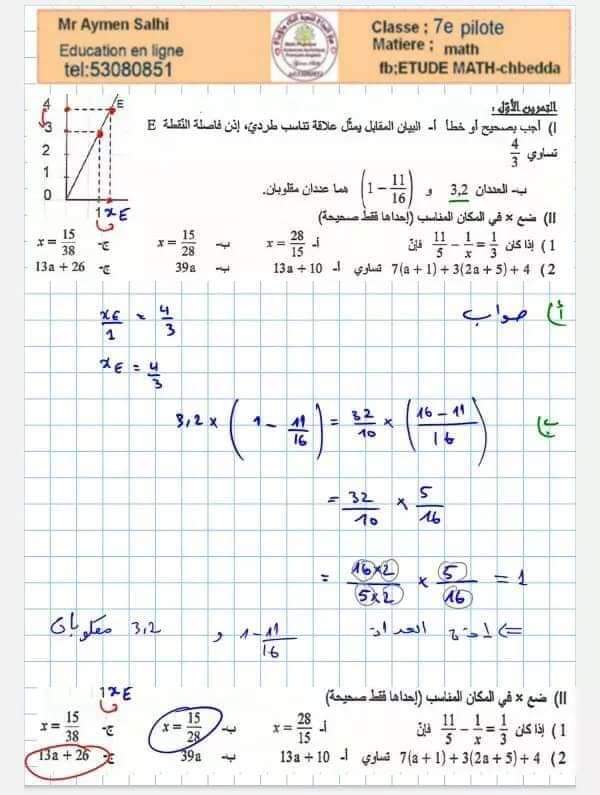 Mr Aymen Salhi
Education en ligne
tel:53080851
Classe ; 7e pilote
Matiere ; math
fb;ETUDE MATH-chbedda
التمرين الأوّل :
I) أجب بصحيح أو خطأ أ- البيان المقابل يمثّل علاقة تناسب طرديّ، إذن فاصلة النّقطة E
تساوي 4/3
ب- العددان 3,2 و (1 − 11/16) هما عددان مقلوبان.
4
3
2
1
0
E
1 xE
II) ضع × في المكان المناسب (إحداها فقط صحيحة)
1) إذا كان 11/5 − 1/x = 1/3 فإنّ أ- x = 28/15 ب- x = 15/28 ج- x = 15/38
2) 7(a + 1) + 3(2a + 5) + 4 تساوي أ- 13a + 10 ب- 39a ج- 13a + 26
أ) صواب
xE/1 = 4/3
xE = 4/3
ب) 3,2 × (1 − 11/16) = 32/10 × (16 − 11/16)
= 32/10 × 5/16
= 16×2/5×2 × 5/16 = 1
العددان 1 − 11/16 و 3,2
1 xE
II) ضع × في المكان المناسب (إحداها فقط صحيحة)
1) إذا كان 11/5 − 1/x = 1/3 فإنّ أ- x = 28/15 ب- x = 15/28 ج- x = 15/38
2) 7(a + 1) + 3(2a + 5) + 4 تساوي أ- 13a + 10 ب- 39a ج- 13a + 26